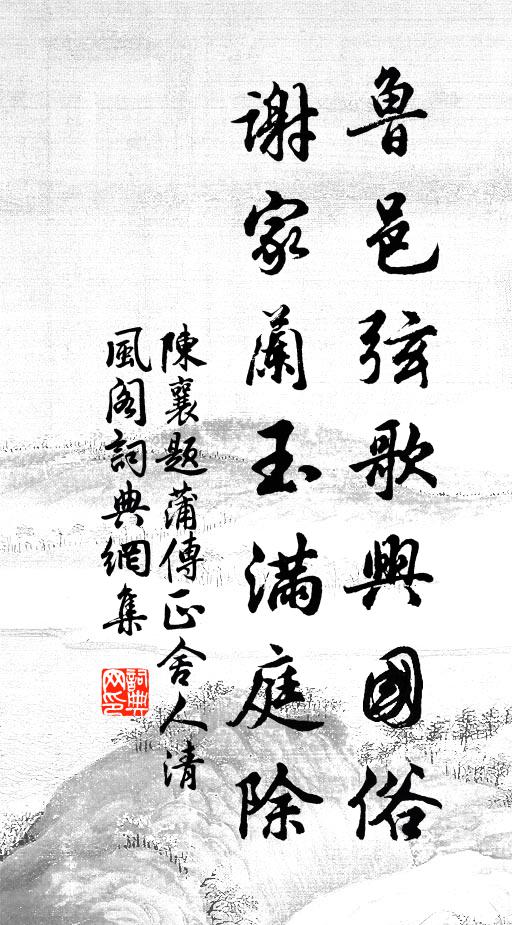 魯邑弦歌興國俗
謝家蘭玉满庭除
陳襄题蒲傳正舍人清
風阁詞典網集
詞典网印